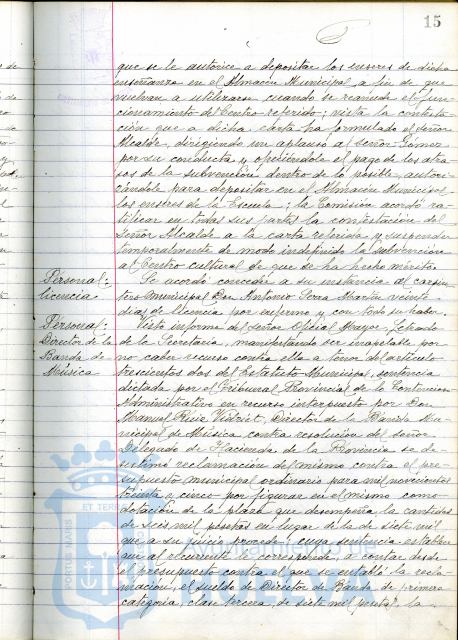 15
que se le autorice a depositar los enseres de dicha
enseñanza en el Almacén Municipal, a fin de que
vuelvan a utilizarse cuando se reanude el fun-
cionamiento del Centro referido; vista la contesta-
ción que a dicha carta ha formulado el señor
Alcalde, dirigiendo un aplauso al señor Gómez
por su conducta y ofreciéndole el pago de los atra-
sos de la subvención dentro de lo posible, autori-
zándole para depositar en el Almacén Municipal
los enseres de la Escuela; la Comisión acordó ra-
tificar en todas sus partes la contestación del
señor Alcalde a la carta referida y suspender
temporalmente de modo indefinido la subvención
al Centro cultural de que se ha hecho mérito.
Personal:
licencia
Se acordó conceder a su instancia al carpin-
tero municipal Don Antonio Serra Martín veinte
días de licencia por enfermo y con todo su haber.
Personal:
Director de la
Banda de
Música
Visto informe del señor Oficial Mayor, Letrado
de la Secretaría, manifestando ser inapelable por
no caber recurso contra ella a tenor del artículo
trescientos dos del Estatuto Municipal, sentencia
dictada por el Tribunal Provincial de lo Contencioso
Administrativo en recurso interpuesto por Don
Manuel Ruiz Vidriet, Director de la Banda Mu-
nicipal de Música contra resolución del señor
Delegado de Hacienda de la Provincia se de-
sestimó reclamación del mismo contra el pre-
supuesto municipal ordinario para mil novecientos
treinta y cinco por figurar en el mismo como
dotación de la plaza que desempeña la cantidad
de seis mil pesetas en lugar de la de siete mil
que a su juicio procede; cuya sentencia establece
que al recurrente le corresponde, a contar desde
el presupuesto contra el que se entabló la recla-
mación, el sueldo de Director de Banda de primera
categoría, clase tercera, de siete mil pesetas, la
PORTUS MARIS ET TERRAE